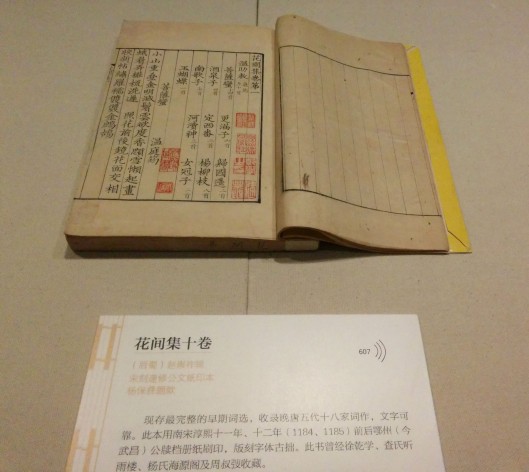 花間集卷第一
溫助教
菩薩蠻 更漏子 歸國遙
酒泉子 定西番 楊柳枝
南歌子 河瀆神 女冠子
玉蝴蝶
菩薩蠻 溫庭筠
小山重疊金明滅鬢雲欲度香顋雪懶起畫
蛾眉弄粧梳洗遲 照花前後鏡花面交相
映新帖繡羅襦雙雙金鷓鴣
花间集十卷
607
（后蜀）赵崇祚辑
宋刻递修公文纸印本
杨保彝题款
现存最完整的早期词选，收录晚唐五代十八家词作，文字可
靠。此本用南宋淳熙十一年、十二年（1184、1185）前后鄂州（今
武昌）公牍档册纸刷印，版刻字体古拙。此书曾经徐乾学、查氏听
雨楼、杨氏海源阁及周叔弢收藏。